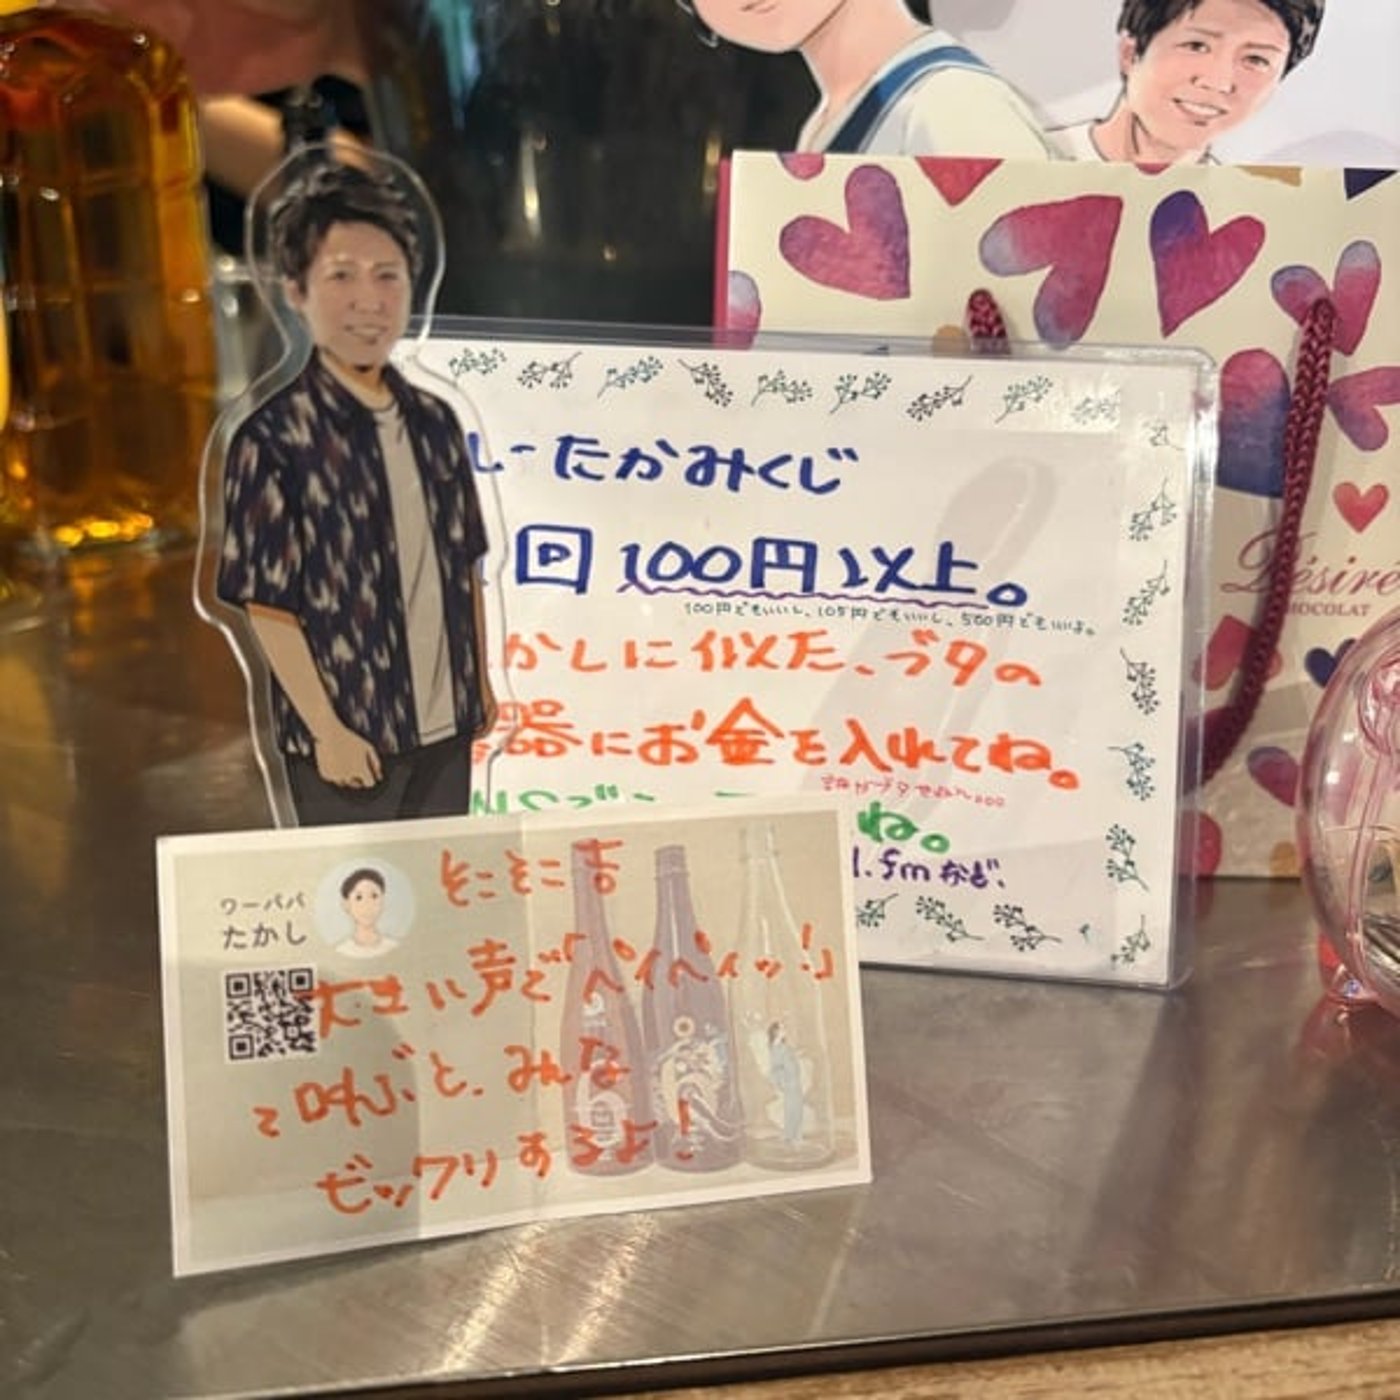 ーたかみくじ
回100円以上。
100円でもいいし、105円でもいいし、500円でもいいよ。
かしに似た、ブタの
器にお金を入れてね。
誰がブタやねん。。。
ね。
.fmなど、
Désiré
CHOCOLAT
ワーパパ
たかし
そこそこ吉
大きい声で「ペイペイッ!」
て叫ぶと、みんな
ビックリするよ!